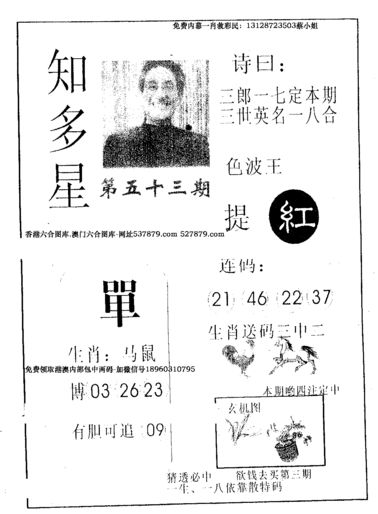 免费内幕一肖救彩民：13128723503蔡小姐
知多星
第五十三期
诗曰：
三郎一七定本期
三世英名一八合
色波王
提 紅
香港六合图库.澳门六合图库-网址537879.com 527879.com
單
生肖：马鼠
免费领取港澳内部包中两码-加微信号18960310795
博 03 26 23
有胆可追 09
连码：
21 46 22 37
生肖送码三中二
本期哟四注定中
玄机图
猪透必中 欲钱去买第三期
一生、一八依靠散特码